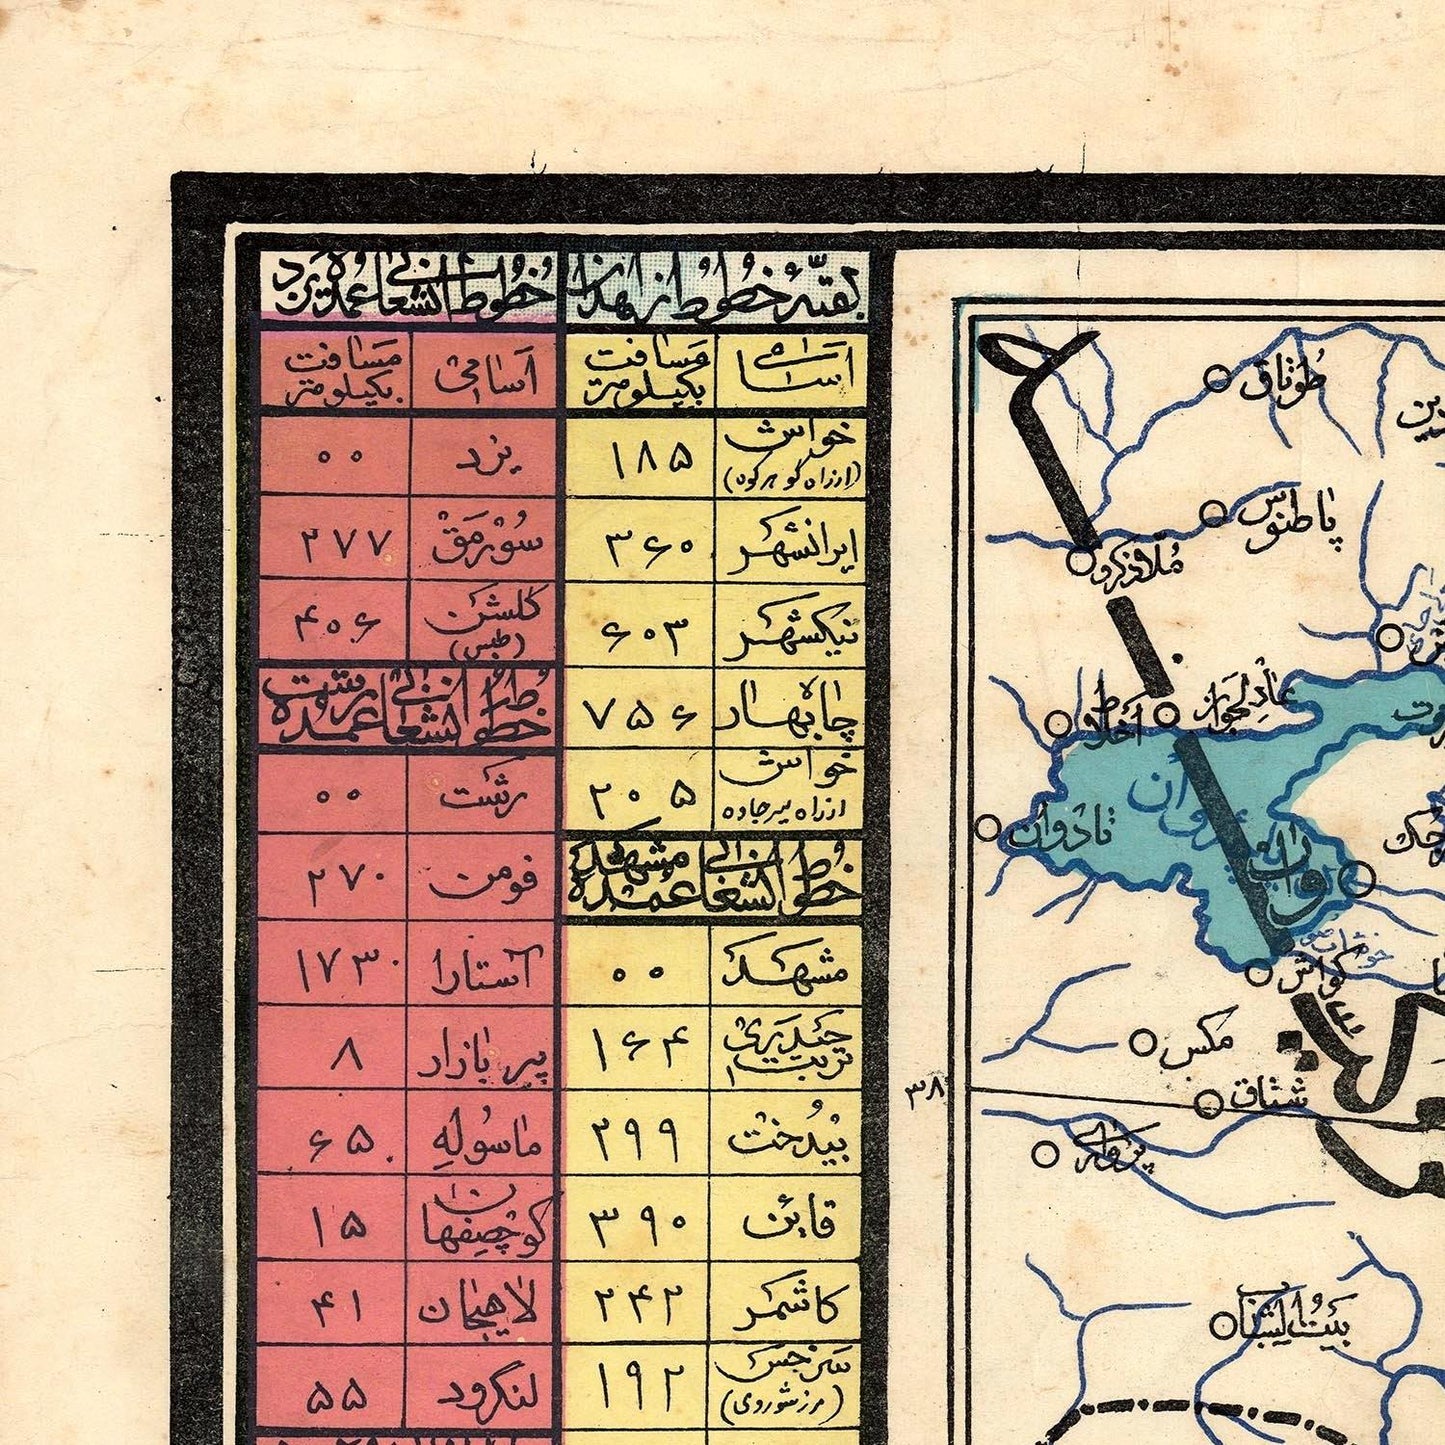 بقیّهٔ خطوط از زاهدان
اسامی مسافت بکیلومتر
خواش (از راه گوهرکوه) ۱۸۵
ایرانشهر ۳۶۰
نیکشهر ۶۰۳
چاه‌بهار ۷۵۶
خواش از راه میرجاوه ۲۰۵
خطوط انشعابی عمده مشهد
مشهد ۰۰
تربت حیدری ۱۶۴
بیدخت ۲۹۹
قاین ۳۹۰
کاشمر ۲۴۲
سرخس (مرز شوروی) ۱۹۲
خطوط انشعابی عمده یزد
اسامی مسافت بکیلومتر
یزد ۰۰
سورمق ۲۷۷
گلشن (طبس) ۴۰۶
خطوط انشعابی عمده رشت
رشت ۰۰
فومن ۲۷۰
آستارا ۱۷۳
پیر بازار ۸
ماسوله ۶۵
کوچصفهان ۱۵
لاهیجان ۴۱
لنگرود ۵۵
طوتاق
پاطنوس
ملاذکرد
عادلجواز
اخلاط
تادوان
وان
خوشاب
کواش
مکس
۳۸
شتاق